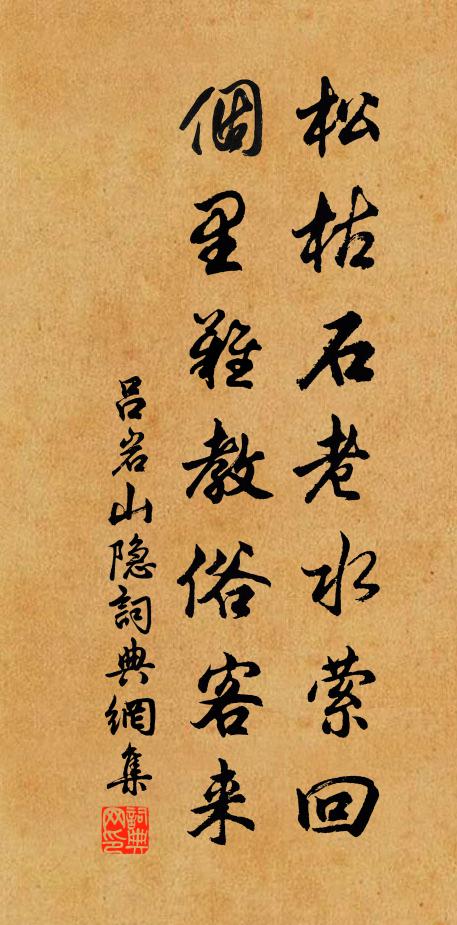 松枯石老水萦回
個里難教俗客来
吕岩山隐詞典網集
詞典網印